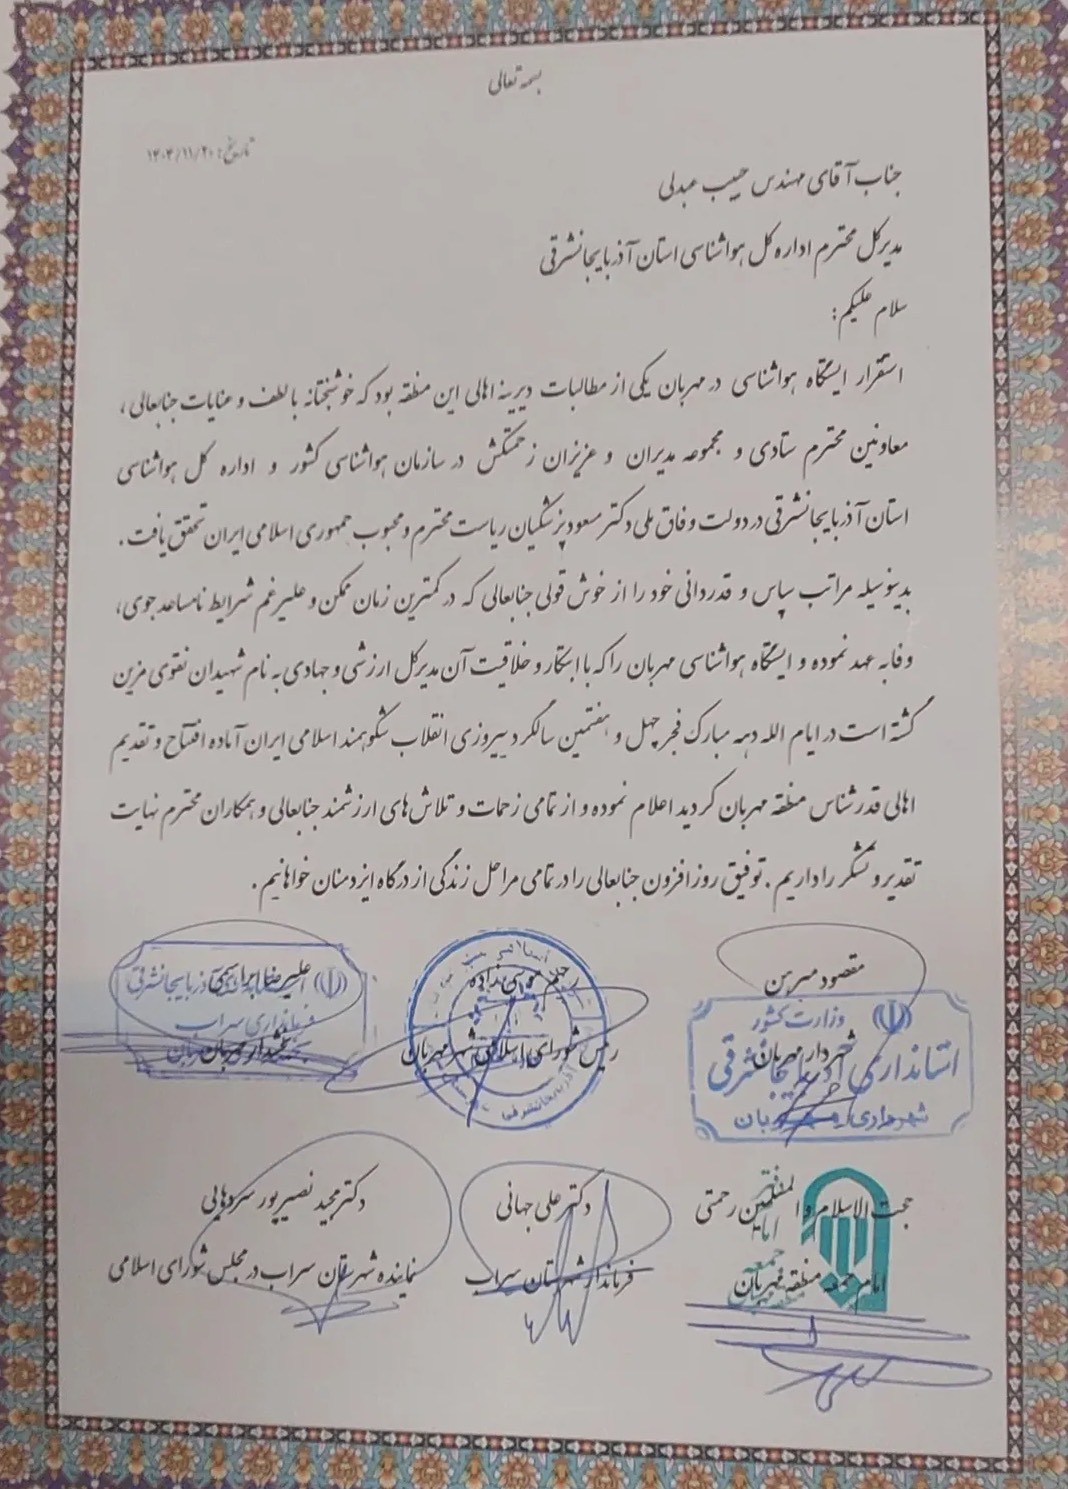 بسمه تعالی
تاریخ: ۱۴۰۴/۱۱/۲۰
جناب آقای مهندس حبیب عبدلی
مدیرکل محترم اداره کل هواشناسی استان آذربایجانشرقی
سلام علیکم:
استقرار ایستگاه هواشناسی در مهربان یکی از مطالبات دیرینه اهالی این منطقه بود که خوشبختانه با لطف و عنایات جنابعالی،
معاونین محترم ستادی و مجموعه مدیران و عزیزان زحمتکش در سازمان هواشناسی کشور و اداره کل هواشناسی
استان آذربایجانشرقی در دولت وفاق ملی دکتر مسعود پزشکیان ریاست محترم و محبوب جمهوری اسلامی ایران تحقق یافت.
بدینوسیله مراتب سپاس و قدردانی خود را از خوش قولی جنابعالی که در کمترین زمان ممکن و علیرغم شرایط نامساعد جوی،
وفا به عهد نموده و ایستگاه هواشناسی مهربان را که با ابتکار و خلاقیت آن مدیرکل ارزشی و جهادی به نام شهیدان نقوی مزین
گشته است در ایام الله دهه مبارک فجر چهل و هفتمین سالگرد پیروزی انقلاب شکوهمند اسلامی ایران آماده افتتاح و تقدیم
اهالی قدرشناس منطقه مهربان گردید اعلام نموده و از تمامی زحمات و تلاش‌های ارزشمند جنابعالی و همکاران محترم نهایت
تقدیر و تشکر را داریم. توفیق روزافزون جنابعالی را در تمامی مراحل زندگی از درگاه ایزد منان خواهانیم.
مقصود مبرهن
شهردار مهربان
وزارت کشور
استانداری آذربایجانشرقی
شهرداری مهربان
موسی زاده
رئیس شورای اسلامی شهر مهربان
علیرضا
بخشدار مهربان
آذربایجانشرقی
فرمانداری سراب
حجت الاسلام و المسلمین رحمتی
امام جمعه منطقه مهربان
دفتر
امام
جمعه
دکتر علی جهانی
فرماندار شهرستان سراب
دکتر مجید نصیرپور سردهایی
نماینده شهرستان سراب در مجلس شورای اسلامی